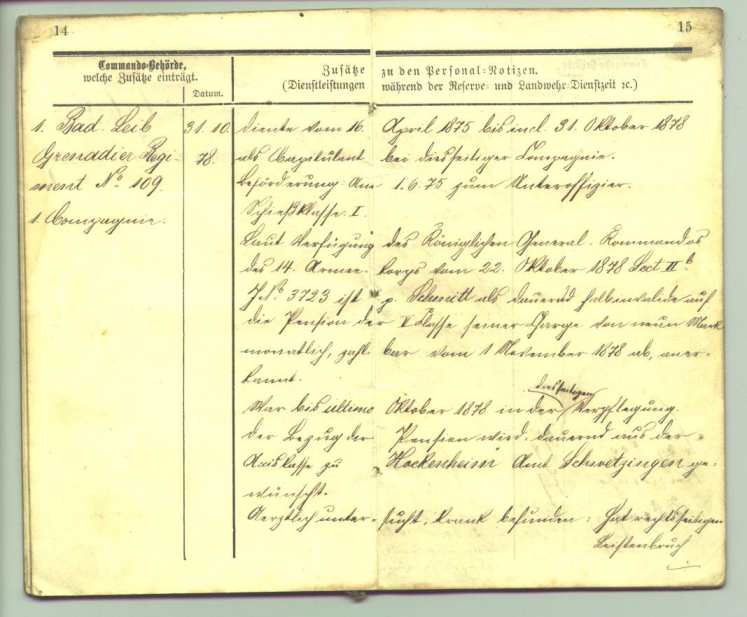 14
15
Commando-Behörde,
welche Zusätze einträgt.
Datum.
Zusätze zu den Personal-Notizen.
(Dienstleistungen während der Reserve- und Landwehr-Dienstzeit ꝛc.)
1. Bad. Leib
Grenadier Regi-
ment No. 109.
1. Compagnie.
31. 10.
78.
diente vom 16. April 1875 bis incl. 31. Oktober 1878
als Capitulant bei diesseitiger Compagnie.
Beförderung: Am 1.6.75 zum Unteroffizier.
Schießklasse I.
Laut Verfügung des Königlichen General-Kommandos
des 14. Armee-korps vom 22. Oktober 1878 Sect. II b
J.No. 3723 ist p. Schmitt als dauernd halbinvalide auf
die Pension der V Klasse seiner Charge von neun Mark
monatlich, zahlbar vom 1 November 1878 ab, aner-
kannt.
War bis ultimo Oktober 1878 in der diesseitigen Verpflegung.
Der Bezug der Pension wird dauernd aus der
kasse zu Hockenheim Amt Schwetzingen ge-
wünscht.
Aerztlich unter-sucht, krank befunden: Hat rechtsseitigen
Leistenbruch